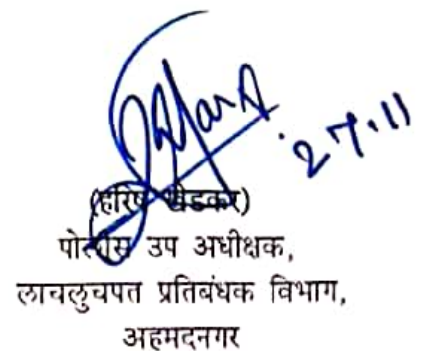 27.11
(हरिष खेडकर)
पोलीस उप अधीक्षक,
लाचलुचपत प्रतिबंधक विभाग,
अहमदनगर